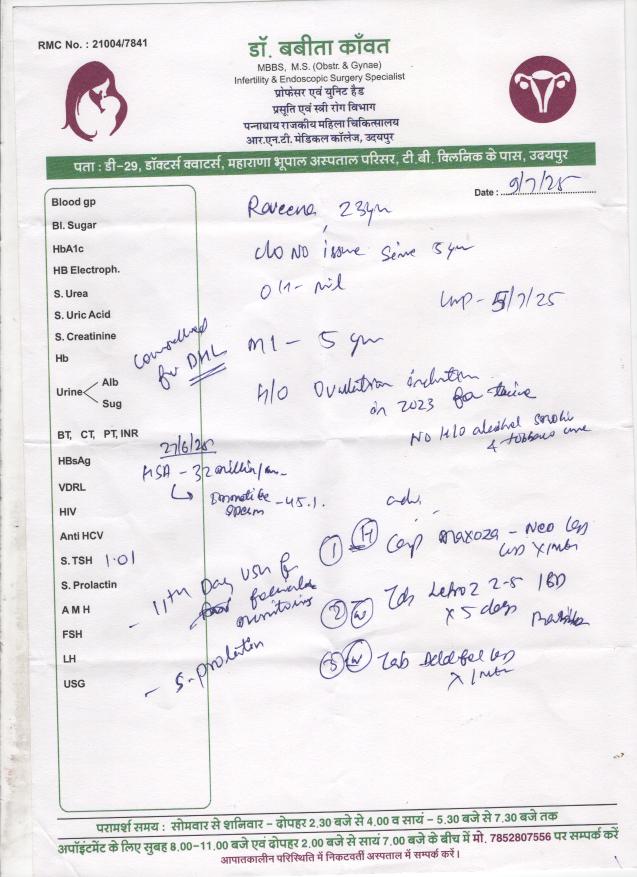 RMC No. : 21004/7841
डॉ. बबीता काँवत
MBBS, M.S. (Obstr. & Gynae)
Infertility & Endoscopic Surgery Specialist
प्रोफेसर एवं युनिट हैड
प्रसूति एवं स्त्री रोग विभाग
पन्नाधाय राजकीय महिला चिकित्सालय
आर.एन.टी. मेडिकल कॉलेज, उदयपुर
पता : डी-29, डॉक्टर्स क्वाटर्स, महाराणा भूपाल अस्पताल परिसर, टी.बी. क्लिनिक के पास, उदयपुर
Date : 9/7/25
Blood gp
Raveena 23yr
Bl. Sugar
HbA1c
c/o NO issue since 5yr
HB Electroph.
S. Urea
O/H - nil
LMP - 5/7/25
S. Uric Acid
S. Creatinine
Counselled for DHL
M1 - 5 yr
Hb
Urine Alb
Sug
H/O Ovulation induction
in 2023 for twice
NO H/O alcohol
& tobacco
BT, CT, PT, INR
27/6/25
HBsAg
HSA - 32 million/
VDRL
sperm - 45.1.
HIV
adv.
Anti HCV
① Cap Maxoza -
S. TSH 1.01
11th Day USG for
follicular
monitoring
S. Prolactin
② Tab Letroz 2-5 1BD
x 5 days
A M H
FSH
LH
③ Tab
x 1
- S. prolactin
USG
परामर्श समय : सोमवार से शनिवार - दोपहर 2.30 बजे से 4.00 व सायं - 5.30 बजे से 7.30 बजे तक
अपॉइंटमेंट के लिए सुबह 8.00-11.00 बजे एवं दोपहर 2.00 बजे से सायं 7.00 बजे के बीच में मो. 7852807556 पर सम्पर्क करें
आपातकालीन परिस्थिति में निकटवर्ती अस्पताल में सम्पर्क करें।